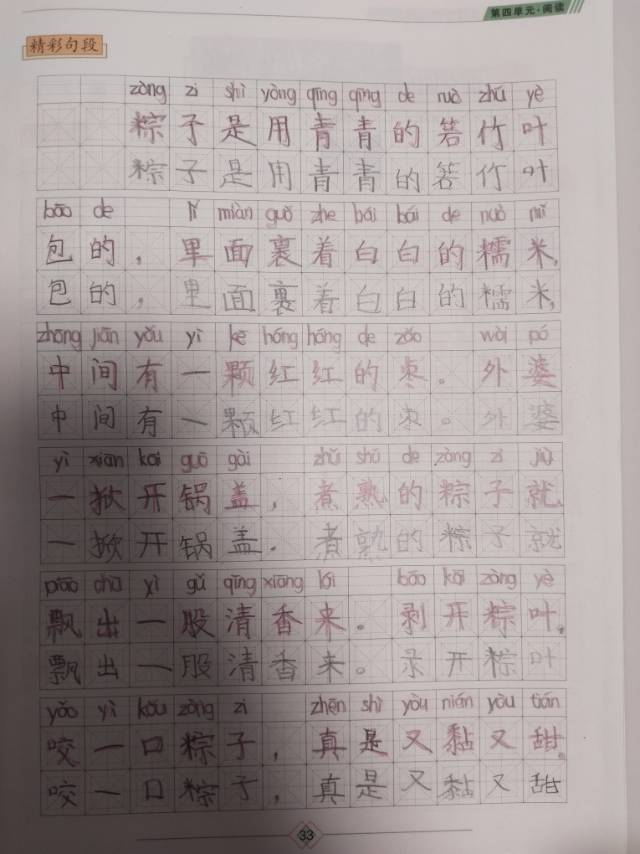 第四单元·阅读
精彩句段
zòng zi shì yòng qīng qīng de ruò zhú yè
粽子是用青青的箬竹叶
粽子是用青青的箬竹叶
bāo de lǐ miàn guǒ zhe bái bái de nuò mǐ
包的，里面裹着白白的糯米，
包的，里面裹着白白的糯米，
zhōng jiān yǒu yì kē hóng hóng de zǎo wài pó
中间有一颗红红的枣。外婆
中间有一颗红红的枣。外婆
yì xiān kāi guō gài zhǔ shú de zòng zi jiù
一掀开锅盖，煮熟的粽子就
一掀开锅盖．煮熟的粽子就
piāo chū yì gǔ qīng xiāng lái bāo kāi zòng yè
飘出一股清香来。剥开粽叶，
飘出一股清香来。录开粽叶
yǎo yì kǒu zòng zi zhēn shì yòu nián yòu tián
咬一口粽子，真是又黏又甜。
咬一口粽子，真是又黏又甜
33